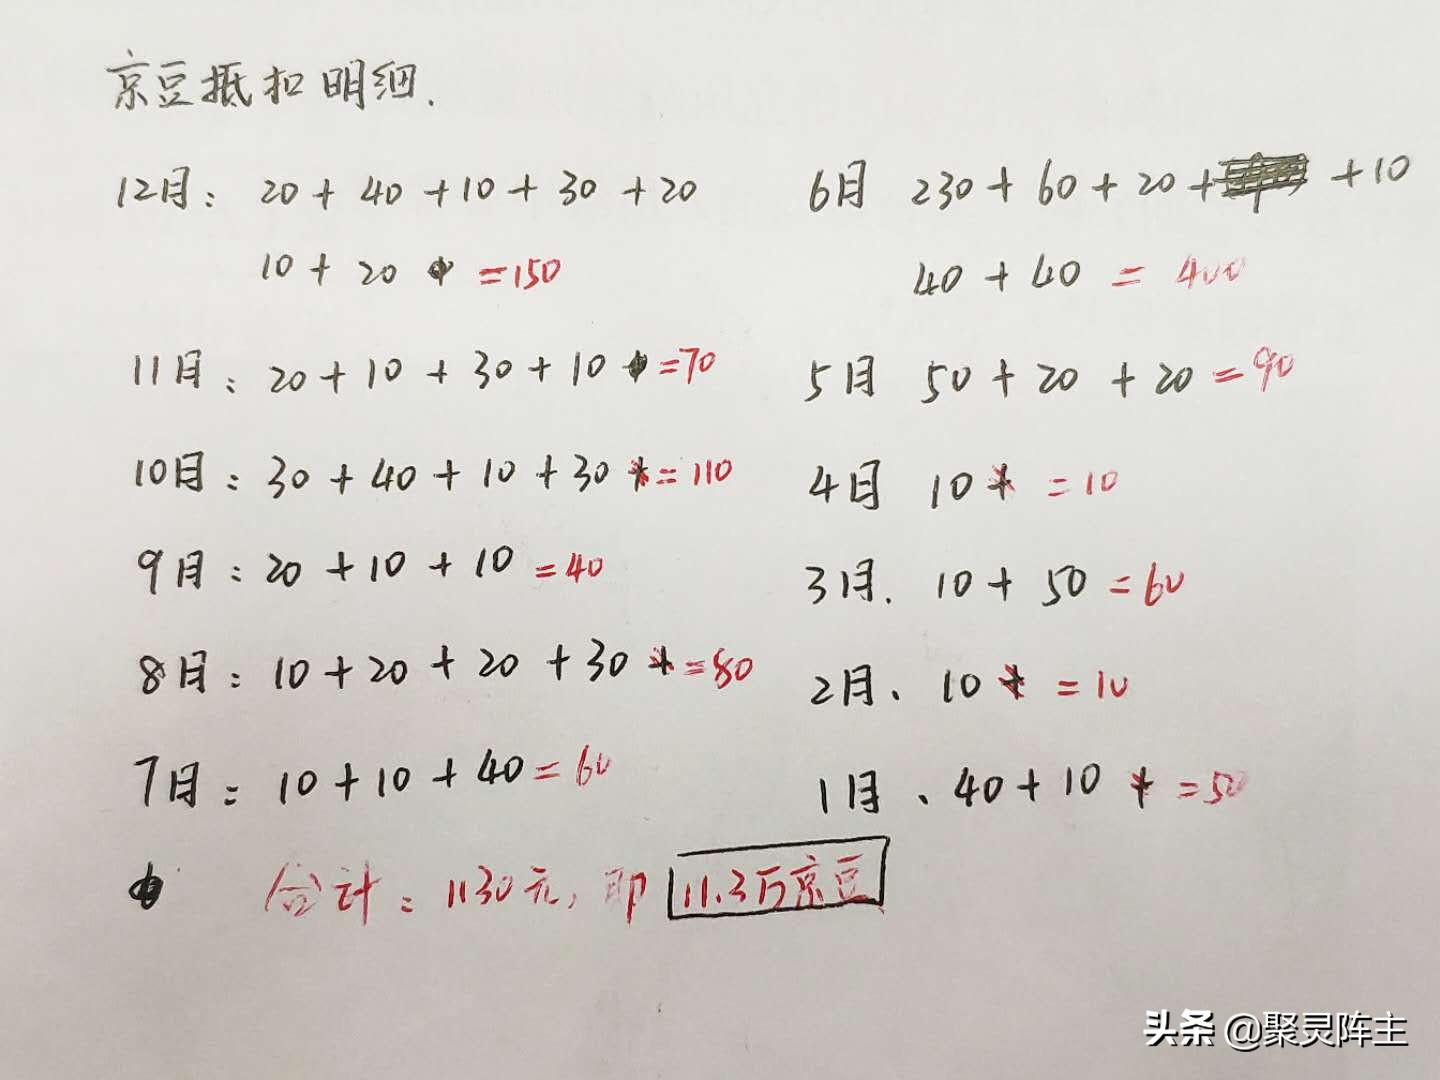 京豆抵扣明细.
12月: 20+40+10+30+20
10+20 =150
11月: 20+10+30+10 =70
10月: 30+40+10+30+=110
9月: 20+10+10=40
8月: 10+20+20+30+=80
7月: 10+10+40=60
6月 230+60+20+ +10
40+40=400
5月 50+20+20=90
4月 10+ =10
3月. 10+50=60
2月. 10+ =10
1月、40+10+=50
合计: 1130元, 即 11.3万京豆
头条 @聚灵阵主